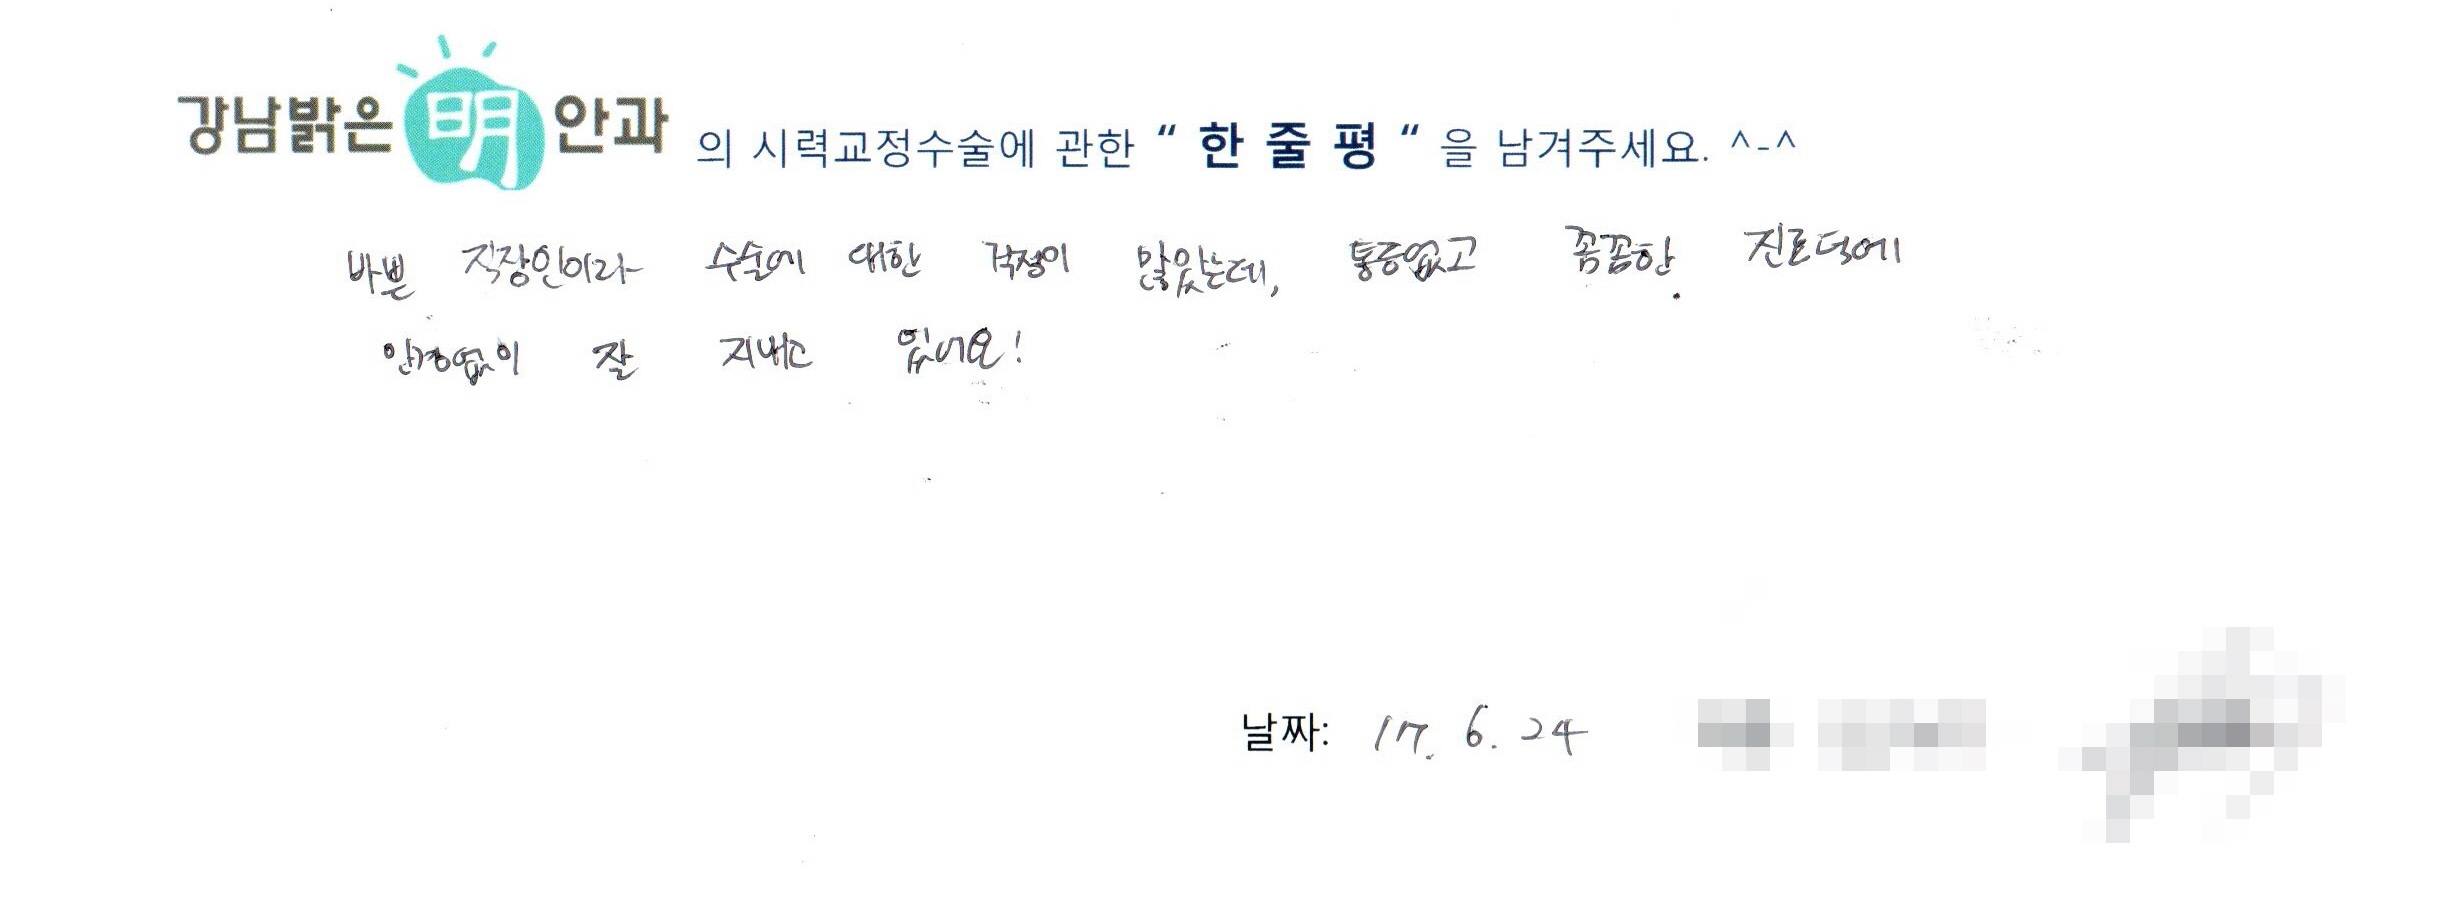 강남밝은 明 안과 의 시력교정수술에 관한 “ 한 줄 평 “ 을 남겨주세요. ^-^
바쁜 직장인이라 수술에 대한 걱정이 많았는데, 통증없고 꼼꼼한 진료덕에
안경없이 잘 지내고 있어요!
날짜: 17. 6. 24